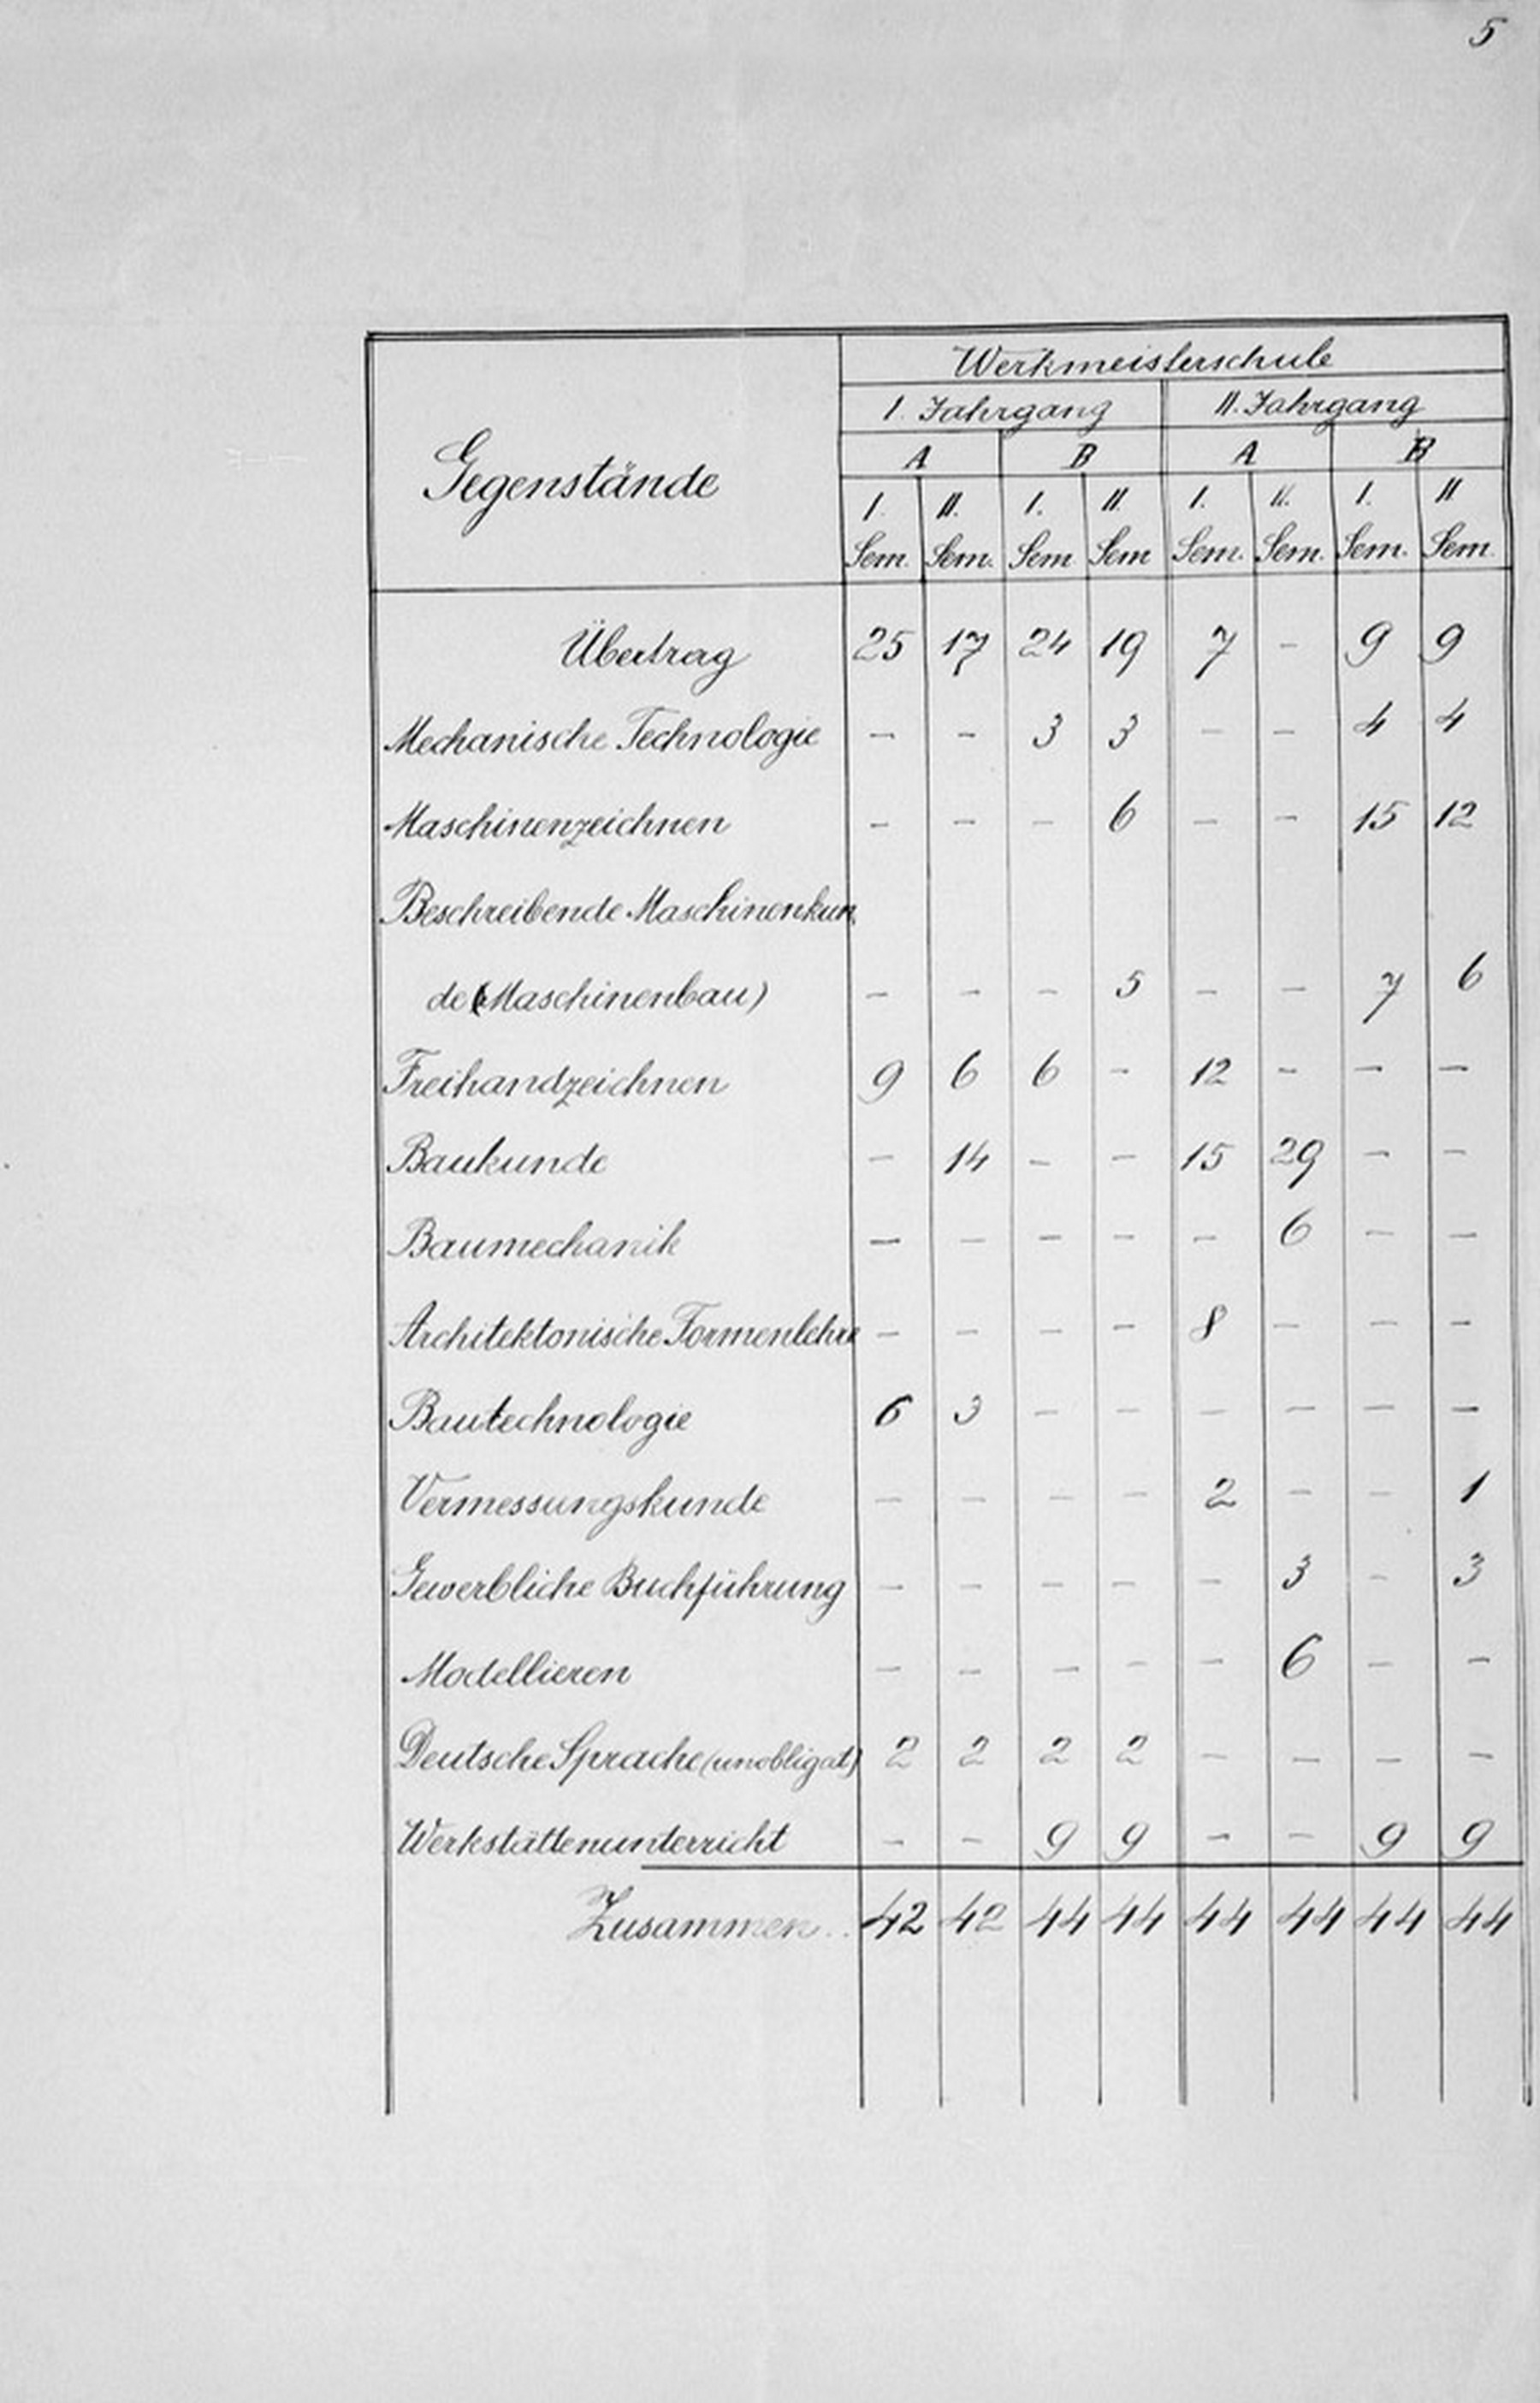 5
Werkmeisterschule
I. Jahrgang II. Jahrgang
A B A B
Gegenstände
I. II. I. II. I. II. I. II
Sem. Sem. Sem Sem Sem. Sem. Sem. Sem.
Übertrag 25 17 24 19 7 - 9 9
Mechanische Technologie - - 3 3 - - 4 4
Maschinenzeichnen - - - 6 - - 15 12
Beschreibende Maschinenkun
de (Maschinenbau) - - - 5 - - 7 6
Freihandzeichnen 9 6 6 - 12 - - -
Baukunde - 14 - - 15 29 - -
Baumechanik - - - - - 6 - -
Architektonische Formenlehre - - - - 8 - - -
Bautechnologie 6 3 - - - - - -
Vermessungskunde - - - - 2 - - 1
Gewerbliche Buchführung - - - - - 3 - 3
Modellieren - - - - - 6 - -
Deutsche Sprache (unobligat) 2 2 2 2 - - - -
Werkstättenunterricht - - 9 9 - - 9 9
Zusammen.. 42 42 44 44 44 44 44 44